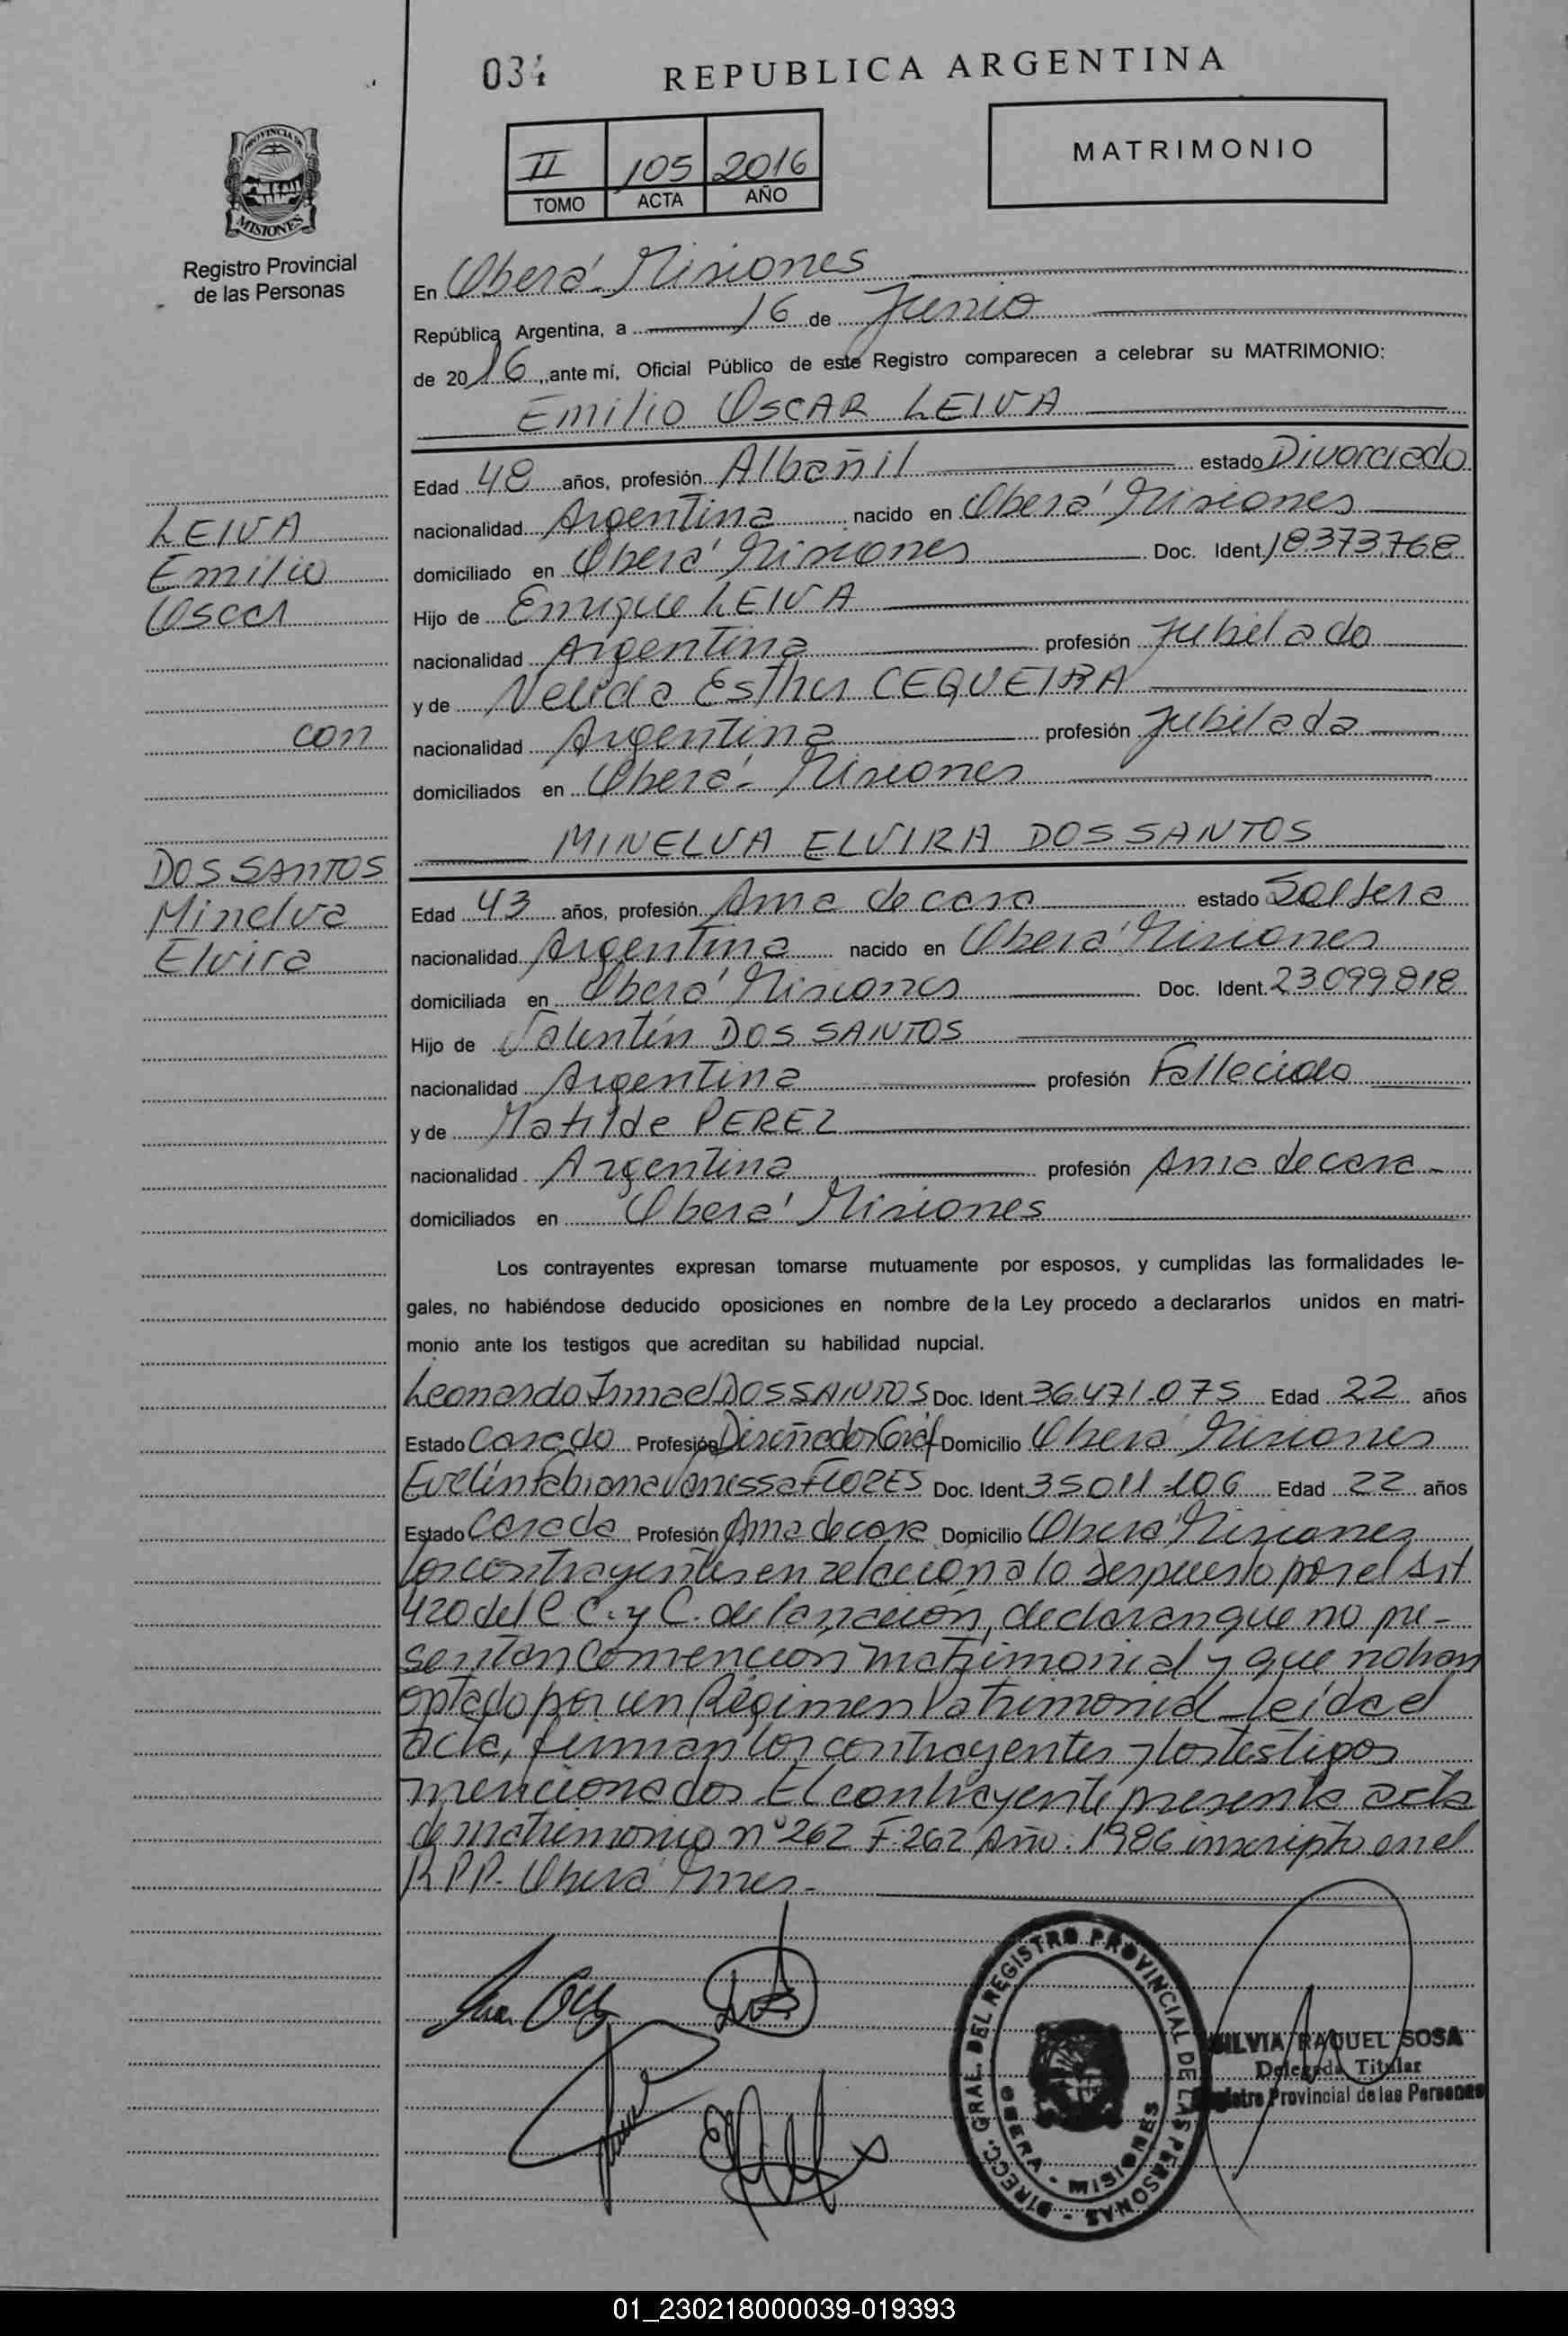 034 REPUBLICA ARGENTINA
MATRIMONIO
II 105 2016
TOMO ACTA AÑO
PROVINCIA DE
MISIONES
Registro Provincial
de las Personas
En Oberá - Misiones
República Argentina, a 16 de Junio
de 2016, ante mí, Oficial Público de este Registro comparecen a celebrar su MATRIMONIO:
Emilio OSCAR LEIVA
Edad 48 años, profesión Albañil estado Divorciado
nacionalidad Argentina nacido en Oberá Misiones
domiciliado en Oberá Misiones Doc. Ident. 18373768
Hijo de Enrique LEIVA
nacionalidad Argentina profesión Jubilado
y de Nelida Esther CEQUEIRA
nacionalidad Argentina profesión Jubilada
domiciliados en Oberá - Misiones
LEIVA
Emilio
Oscar
con
DOS SANTOS
Minelva
Elvira
MINELVA ELVIRA DOS SANTOS
Edad 43 años, profesión Ama de casa estado Soltera
nacionalidad Argentina nacido en Oberá Misiones
domiciliada en Oberá Misiones Doc. Ident. 23099818
Hijo de Valentín DOS SANTOS
nacionalidad Argentina profesión Fallecido
y de Matilde PEREZ
nacionalidad Argentina profesión Ama de casa -
domiciliados en Oberá Misiones
Los contrayentes expresan tomarse mutuamente por esposos, y cumplidas las formalidades le-
gales, no habiéndose deducido oposiciones en nombre de la Ley procedo a declararlos unidos en matri-
monio ante los testigos que acreditan su habilidad nupcial.
Leonardo Ismael DOS SANTOS Doc. Ident. 36.471.075 Edad 22 años
Estado Casado Profesión Diseñador Gráf Domicilio Oberá Misiones
Evelín Fabiana Vanessa FLORES Doc. Ident. 35011.106 Edad 22 años
Estado Casada Profesión Ama de casa Domicilio Oberá Misiones
Los contrayentes en relación a lo despuesto por el Art
420 del C C. y C. de la nación, declaran que no pre-
sentan Convención matrimonial y que no han
optado por un Régimen Patrimonial - leída el
acta, firman los contrayentes y los testigos
mencionados. El contrayente presenta acta
de matrimonio nº 262 F: 262 Año: 1986 inscripto en el
R.P.P. Oberá Mnes. -
DIRECC. GRAL. DEL REGISTRO PROVINCIAL DE LAS PERSONAS -
OBERA - MISIONES
SILVIA RAQUEL SOSA
Delegada Titular
Registro Provincial de las Personas
01_230218000039-019393